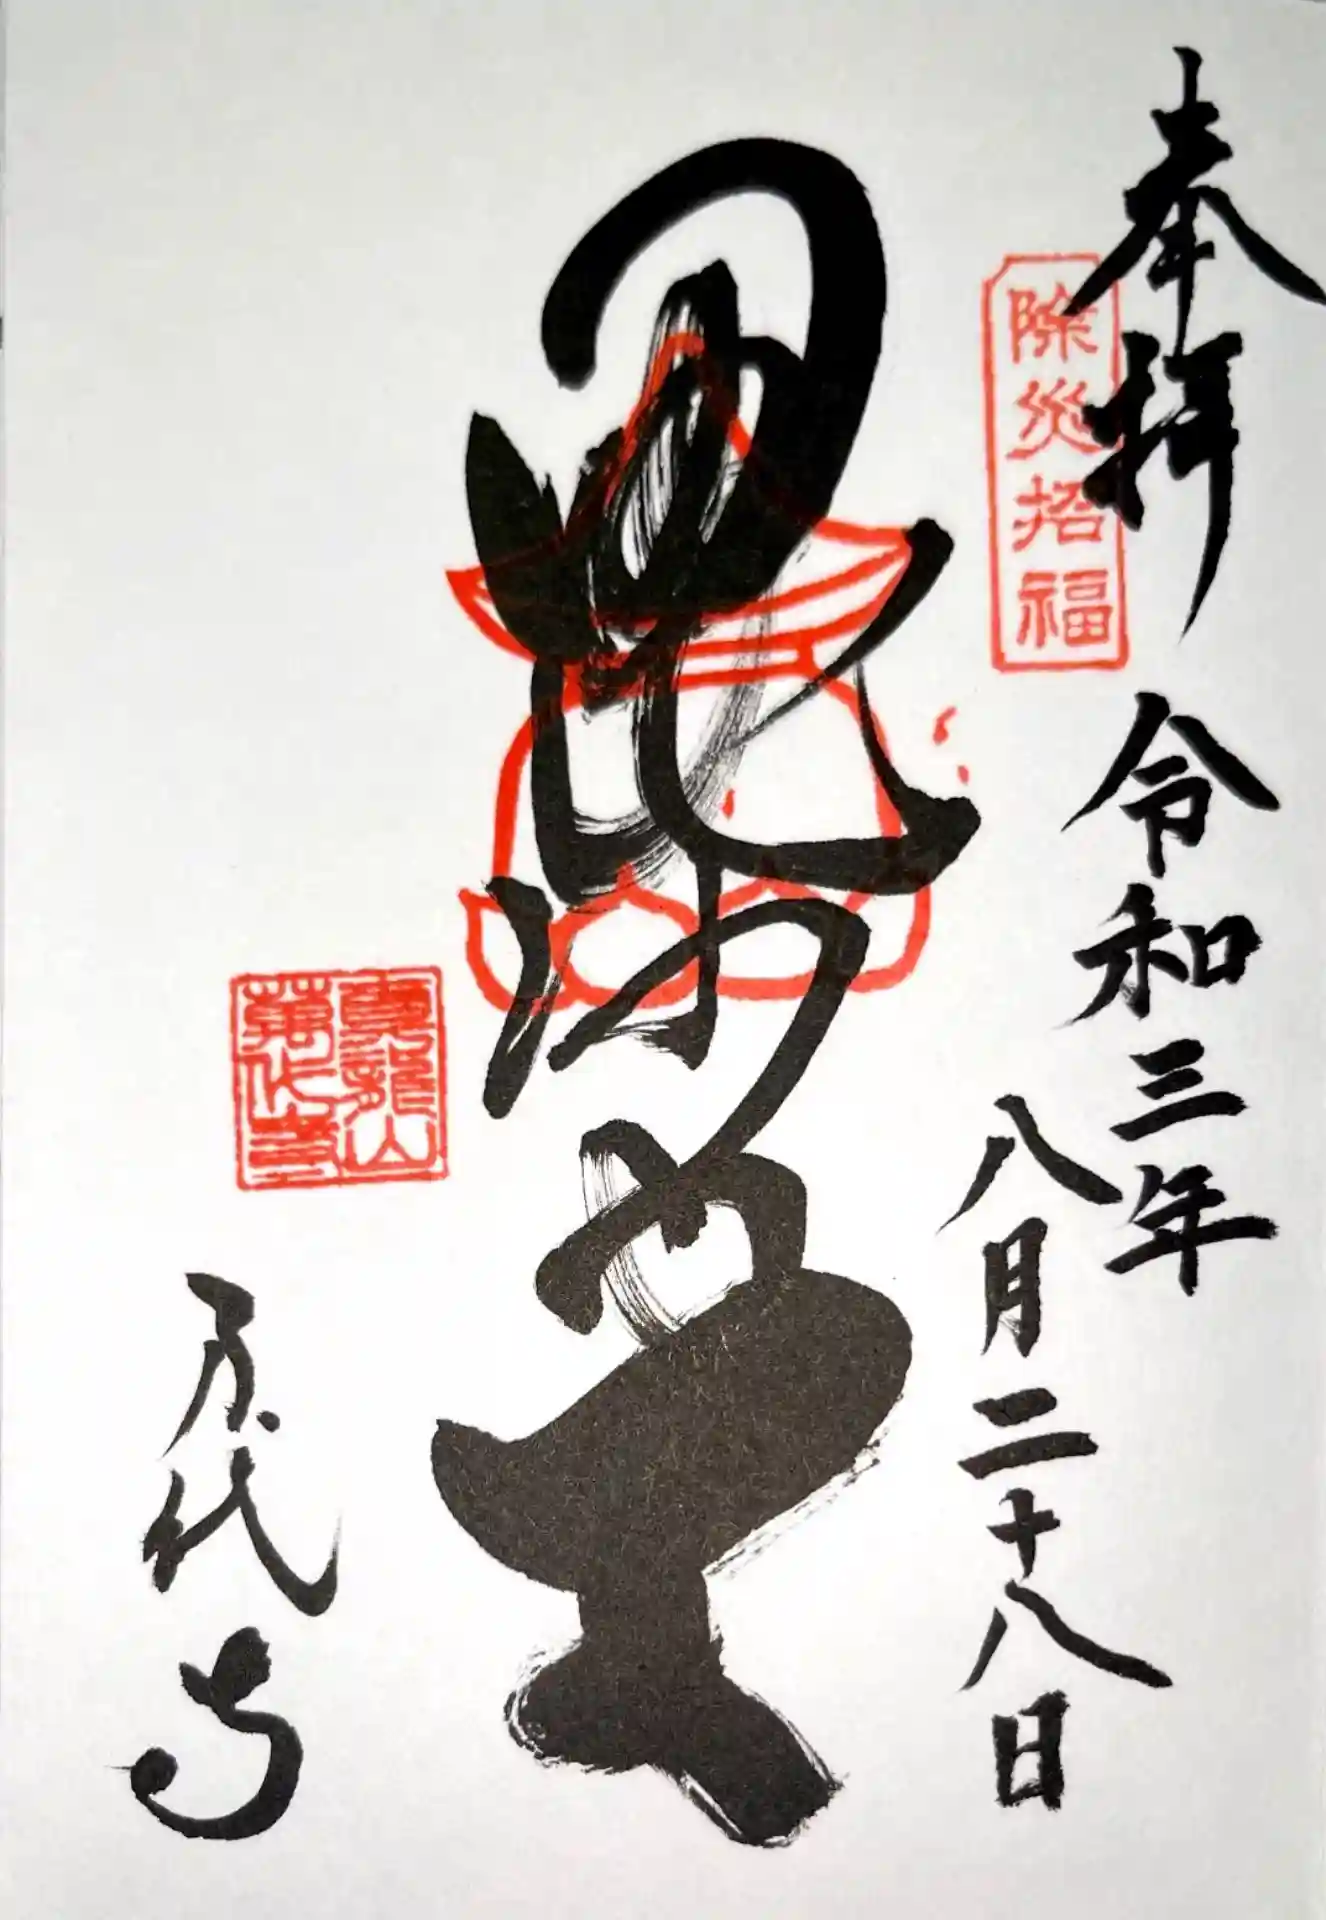 奉拝
除災招福
令和三年
八月二十八日
毘沙門天
龍山
萬代寺
万代寺